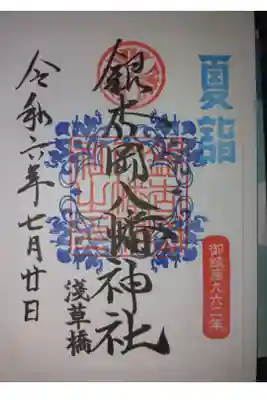 夏詣
御鎮座九六二年
銀杏岡八幡神社
淺草橋
令和六年七月廿日